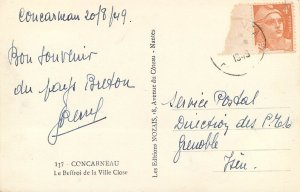 Concarneau 20/8/49.
Bon souvenir
du pays Breton
137 - CONCARNEAU
Le Beffroi de la Ville Close
Les Editions NOZAIS, 8, Avenue du Côteau - Nantes
Service Postal
Direction des P.T.T
Grenoble
Isère.